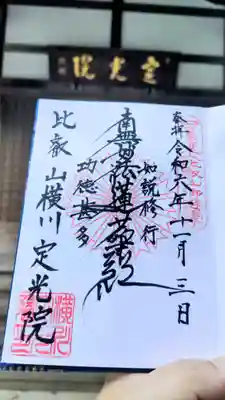 定光院
奉拝 令和六年十一月三日
如説修行
南無妙法蓮華経
功徳甚多
比叡山横川 定光院